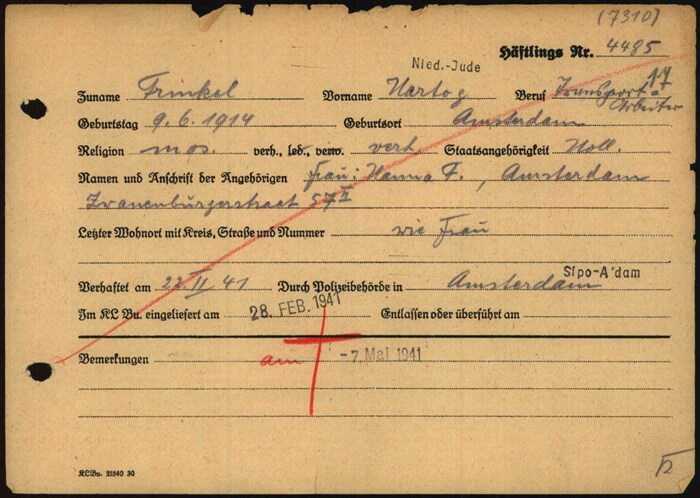 (7310)
Häftlings Nr. 4485
Nied.-Jude 17
Zuname Frinkel Vorname Hartog Beruf Transport-
Arbeiter
Geburtstag 9.6.1914 Geburtsort Amsterdam
Religion mos. verh., led., verw. verh. Staatsangehörigkeit Holl.
Namen und Anschrift der Angehörigen Frau: Hanna F., Amsterdam
Zwanenburgerstraat 57 II
Letzter Wohnort mit Kreis, Straße und Nummer wie Frau
Sipo-A'dam
Verhaftet am 22.II.41 Durch Polizeibehörde in Amsterdam
Im KL Bu. eingeliefert am 28. FEB. 1941 Entlassen oder überführt am
Bemerkungen am - 7. Mai 1941
KLBu. 21540 30